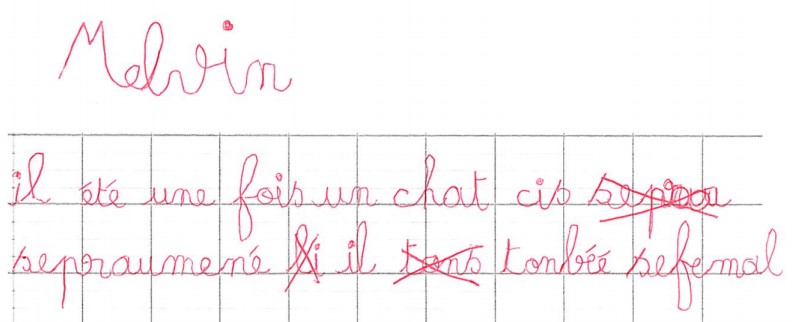 Melvin
il été une fois un chat cis seprau
sepraumené li il tons tonbéé sefemal